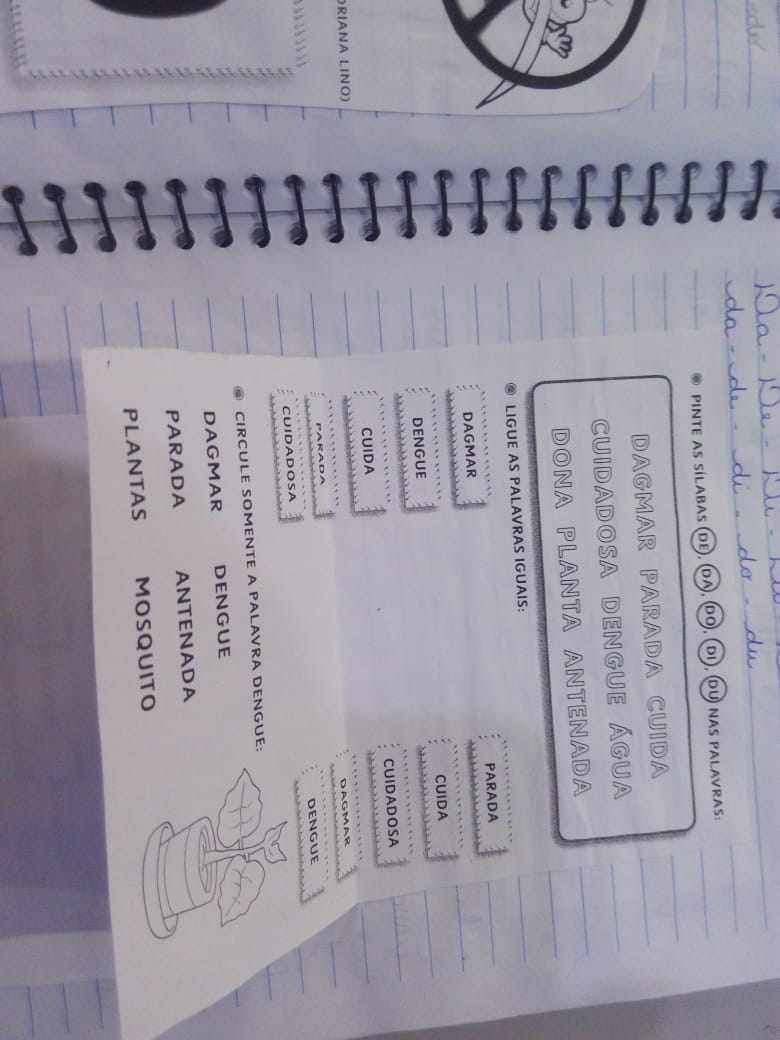 DRIANA LINO)
Da - De - Di -
da - de - di - do - du
PINTE AS SÍLABAS DE, DA, DO, DI, DU NAS PALAVRAS:
DAGMAR PARADA CUIDA
CUIDADOSA DENGUE ÁGUA
DONA PLANTA ANTENADA
LIGUE AS PALAVRAS IGUAIS:
DAGMAR PARADA
DENGUE CUIDA
CUIDA CUIDADOSA
PARADA DAGMAR
CUIDADOSA DENGUE
CIRCULE SOMENTE A PALAVRA DENGUE:
DAGMAR DENGUE
PARADA ANTENADA
PLANTAS MOSQUITO